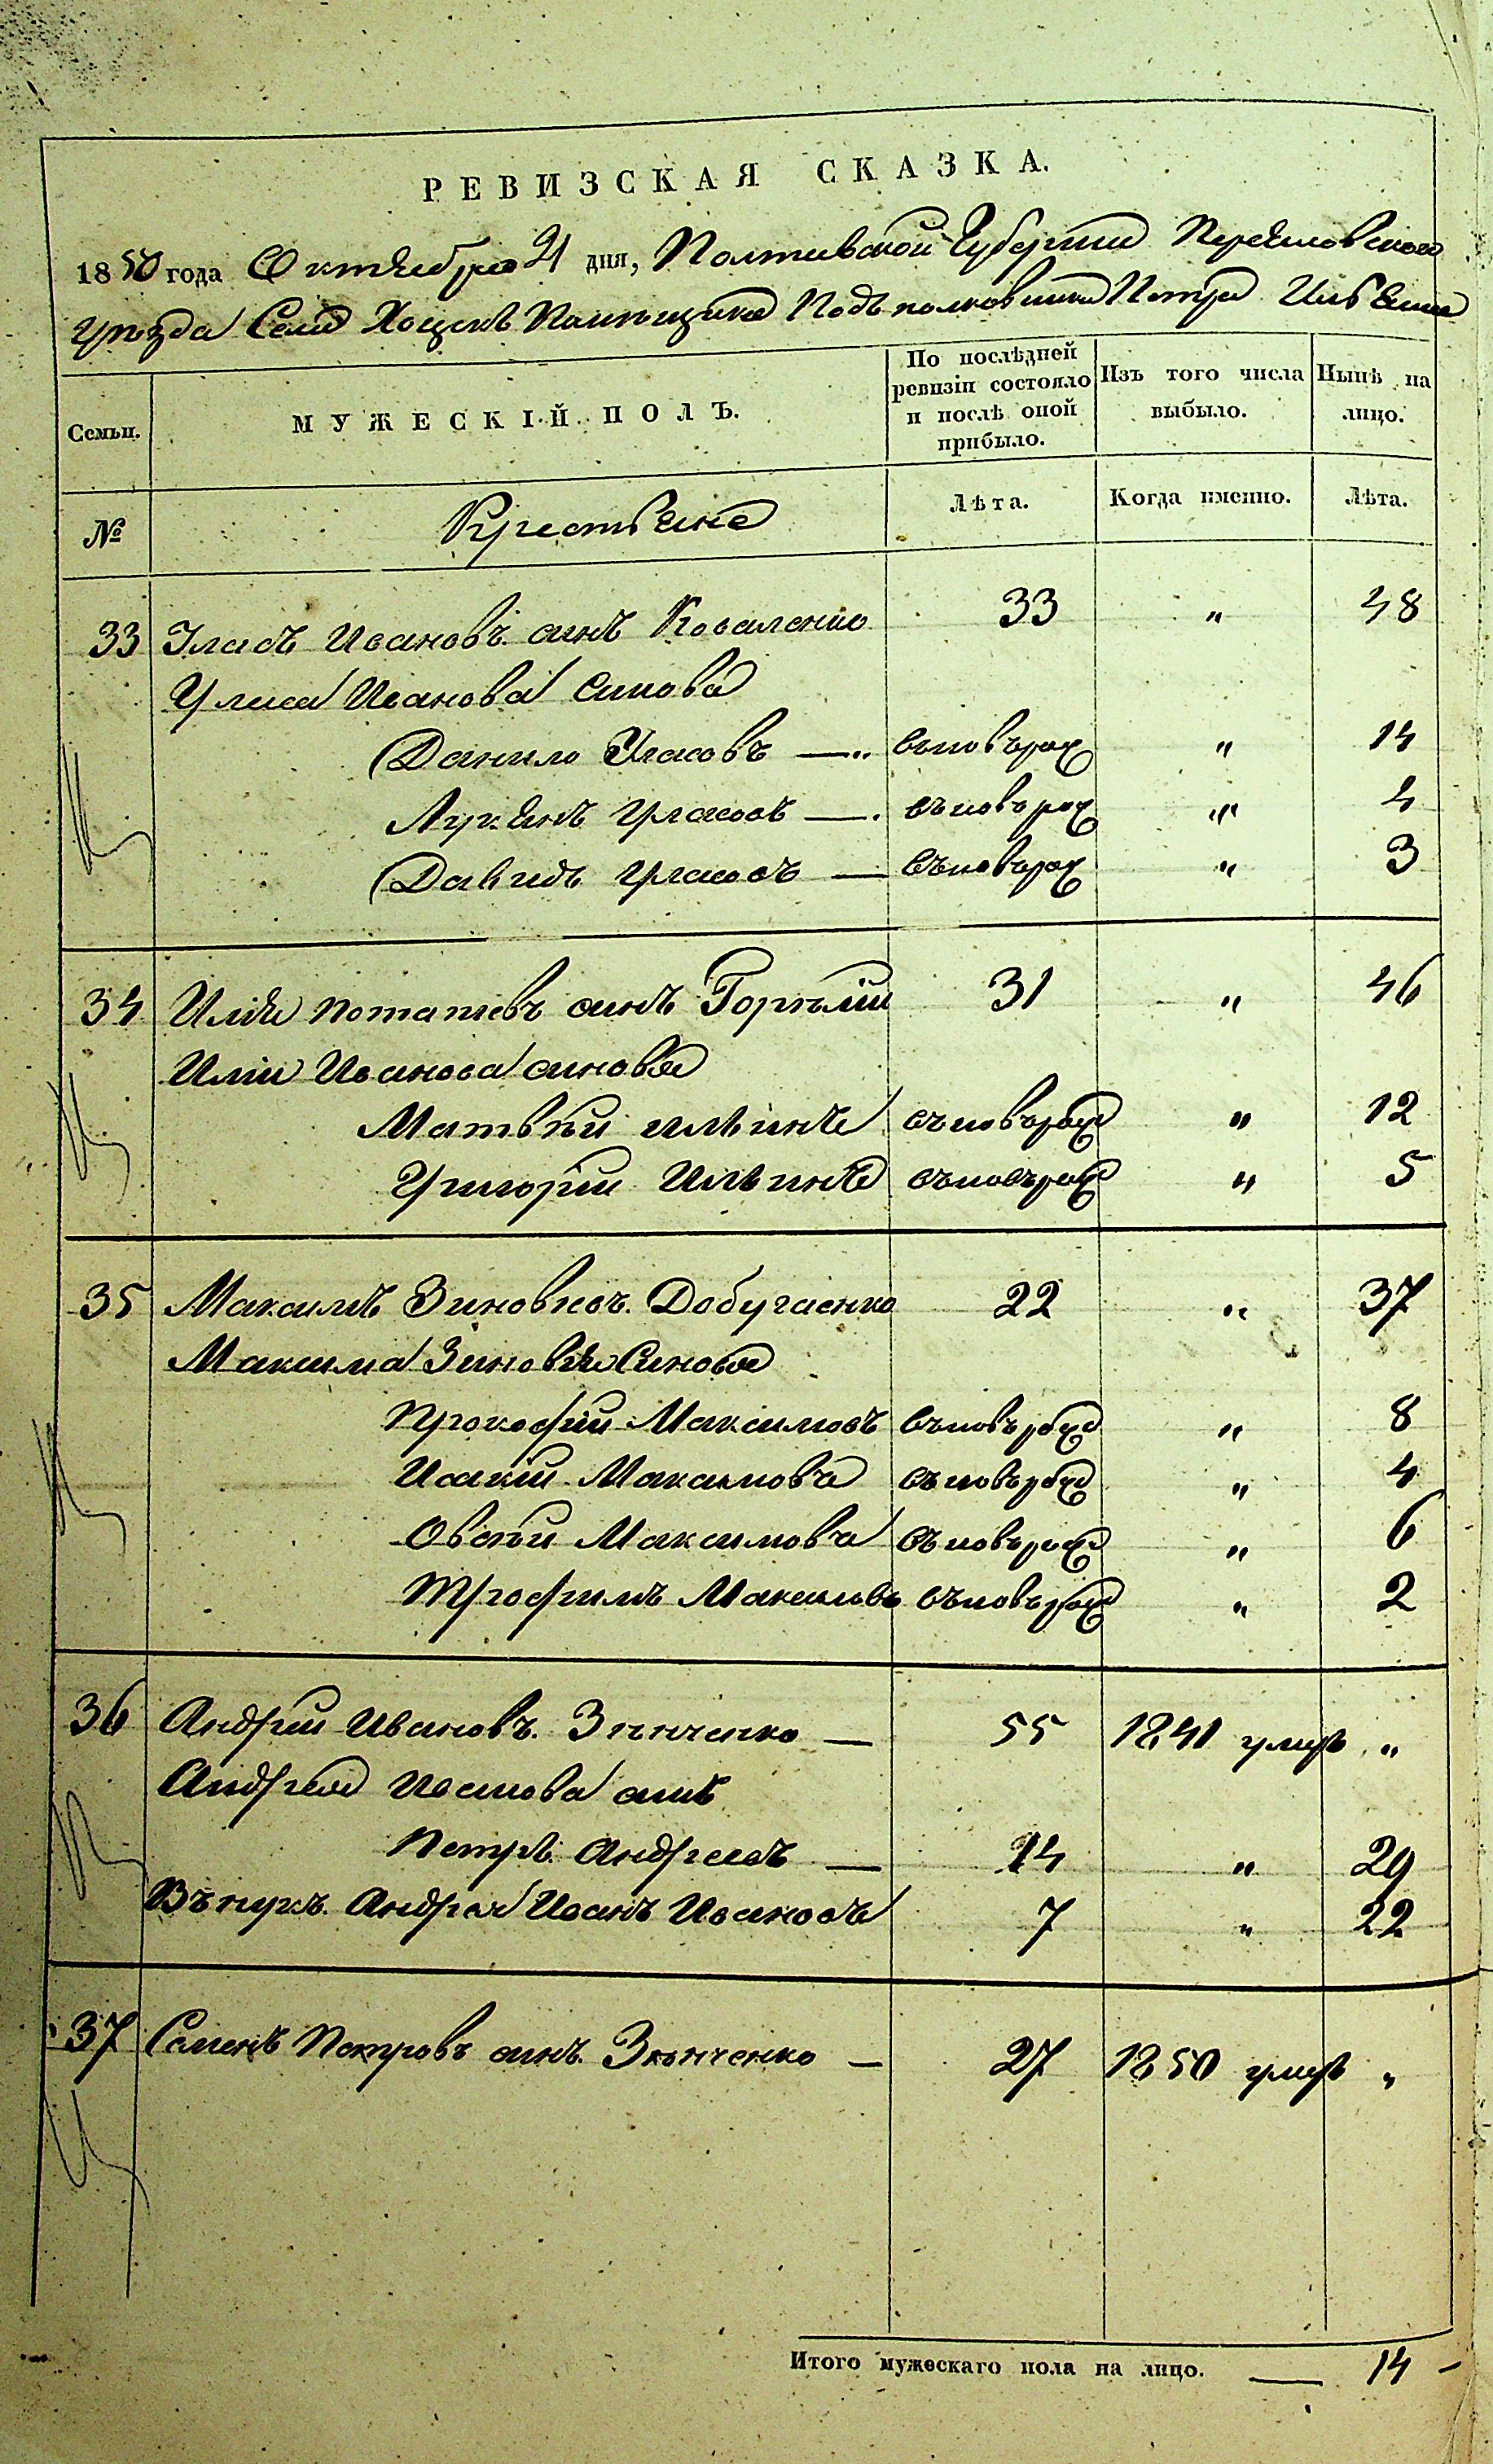 РЕВИЗСКАЯ СКАЗКА.
1850 года Октября 21 дня, Полтавской Губернии Переяловского
Уѣзда Села Хоцекъ Помѣщика Подъполковника Петра
Семьи. МУЖЕСКІЙ ПОЛЪ. По послѣдней ревизіи состояло и послѣ оной прибыло. Изъ того числа выбыло. Нынѣ на лицо.
№ Крестьяне Лѣта. Когда именно. Лѣта.
33 Уласъ Ивановъ синъ Коваленко 33 " 48
Уласа Иванова Синова
Данило Уласовъ — съновърож " 14
Лукянъ Уласовъ — съновърож " 4
Давидъ Уласовъ — съновърож " 3
34 Илія Потапіевъ синъ 31 " 46
Иліи Иванова синовя
Матвѣй Ильинъ съновърож " 12
Григорій Ильинъ съновърож " 5
35 Максимъ Зиновіевъ 22 " 37
Максима Зиновія Синовя
Прокофій Максимовъ съновърож " 8
Исакій Максимовъ съновърож " 4
Овсѣй Максимовъ съновърож " 6
Трофимъ Максимовъ съновърож " 2
36 Андрей Ивановъ Зѣнченко — 55 1841 умеръ "
Андрея Иванова синъ
Петръ Андреевъ — 14 " 29
Вънукъ Андрея Иванъ Ивановъ 7 " 22
37 Семенъ Петровъ синъ Зѣнченко — 27 1850 умеръ "
Итого мужескаго пола на лицо. — 14 –